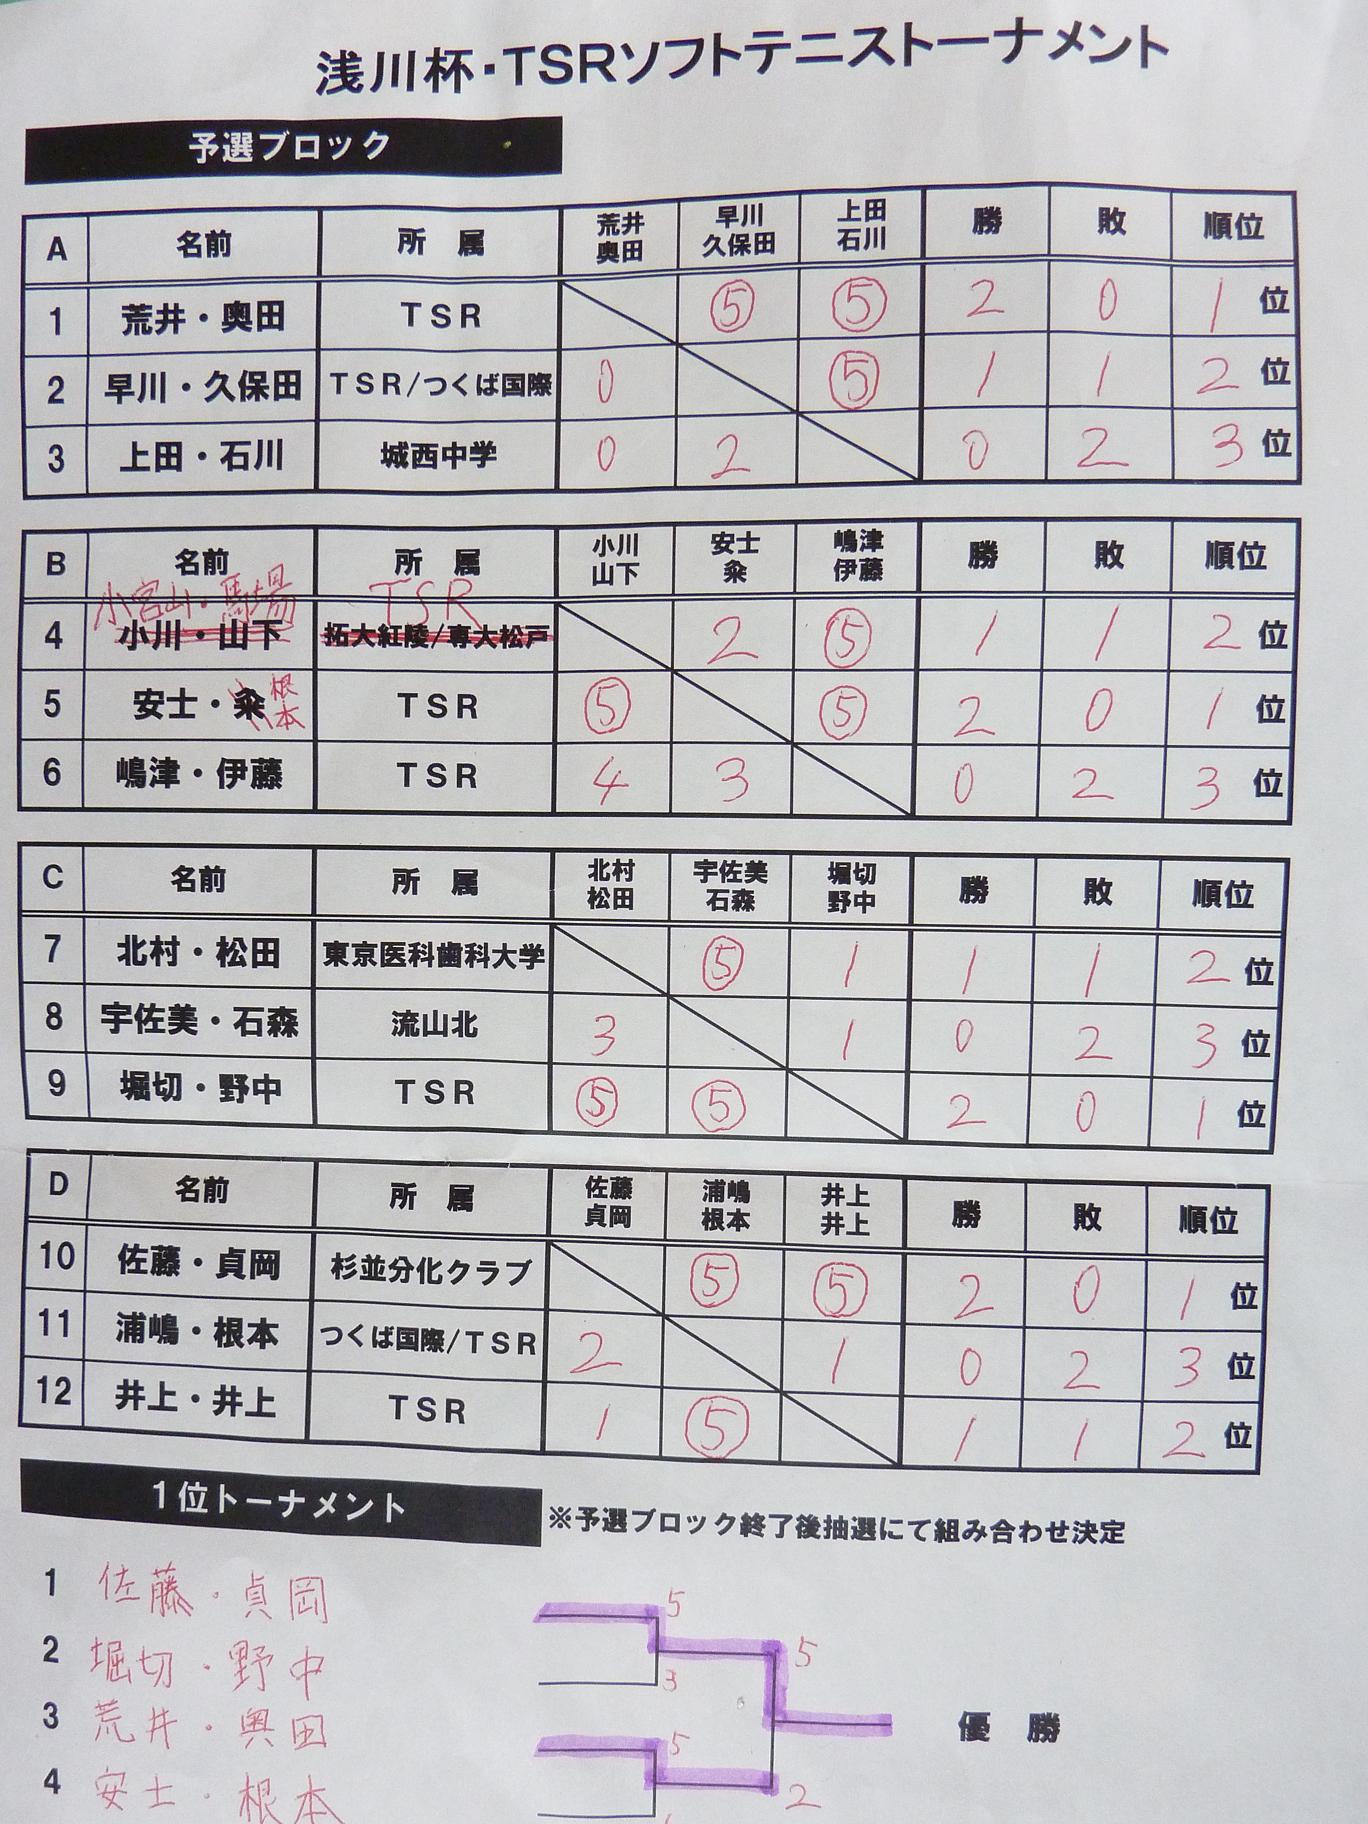 浅川杯・TSRソフトテニストーナメント
予選ブロック
A 名前 所 属 荒井 奥田 早川 久保田 上田 石川 勝 敗 順位
1 荒井・奥田 TSR ⑤ ⑤ 2 0 1 位
2 早川・久保田 TSR/つくば国際 0 ⑤ 1 1 2 位
3 上田・石川 城西中学 0 2 0 2 3 位
B 名前 所 属 小川 山下 安士 粂 嶋津 伊藤 勝 敗 順位
小宮山・馬場 TSR
4 小川・山下 拓大紅陵/専大松戸 2 ⑤ 1 1 2 位
5 安士・粂 根本 TSR ⑤ ⑤ 2 0 1 位
6 嶋津・伊藤 TSR 4 3 0 2 3 位
C 名前 所 属 北村 松田 宇佐美 石森 堀切 野中 勝 敗 順位
7 北村・松田 東京医科歯科大学 ⑤ 1 1 1 2 位
8 宇佐美・石森 流山北 3 1 0 2 3 位
9 堀切・野中 TSR ⑤ ⑤ 2 0 1 位
D 名前 所 属 佐藤 貞岡 浦嶋 根本 井上 井上 勝 敗 順位
10 佐藤・貞岡 杉並分化クラブ ⑤ ⑤ 2 0 1 位
11 浦嶋・根本 つくば国際/TSR 2 1 0 2 3 位
12 井上・井上 TSR 1 ⑤ 1 1 2 位
1位トーナメント ※予選ブロック終了後抽選にて組み合わせ決定
1 佐藤・貞岡 5
2 堀切・野中 3 5
3 荒井・奥田 5 優 勝
4 安士・根本 2